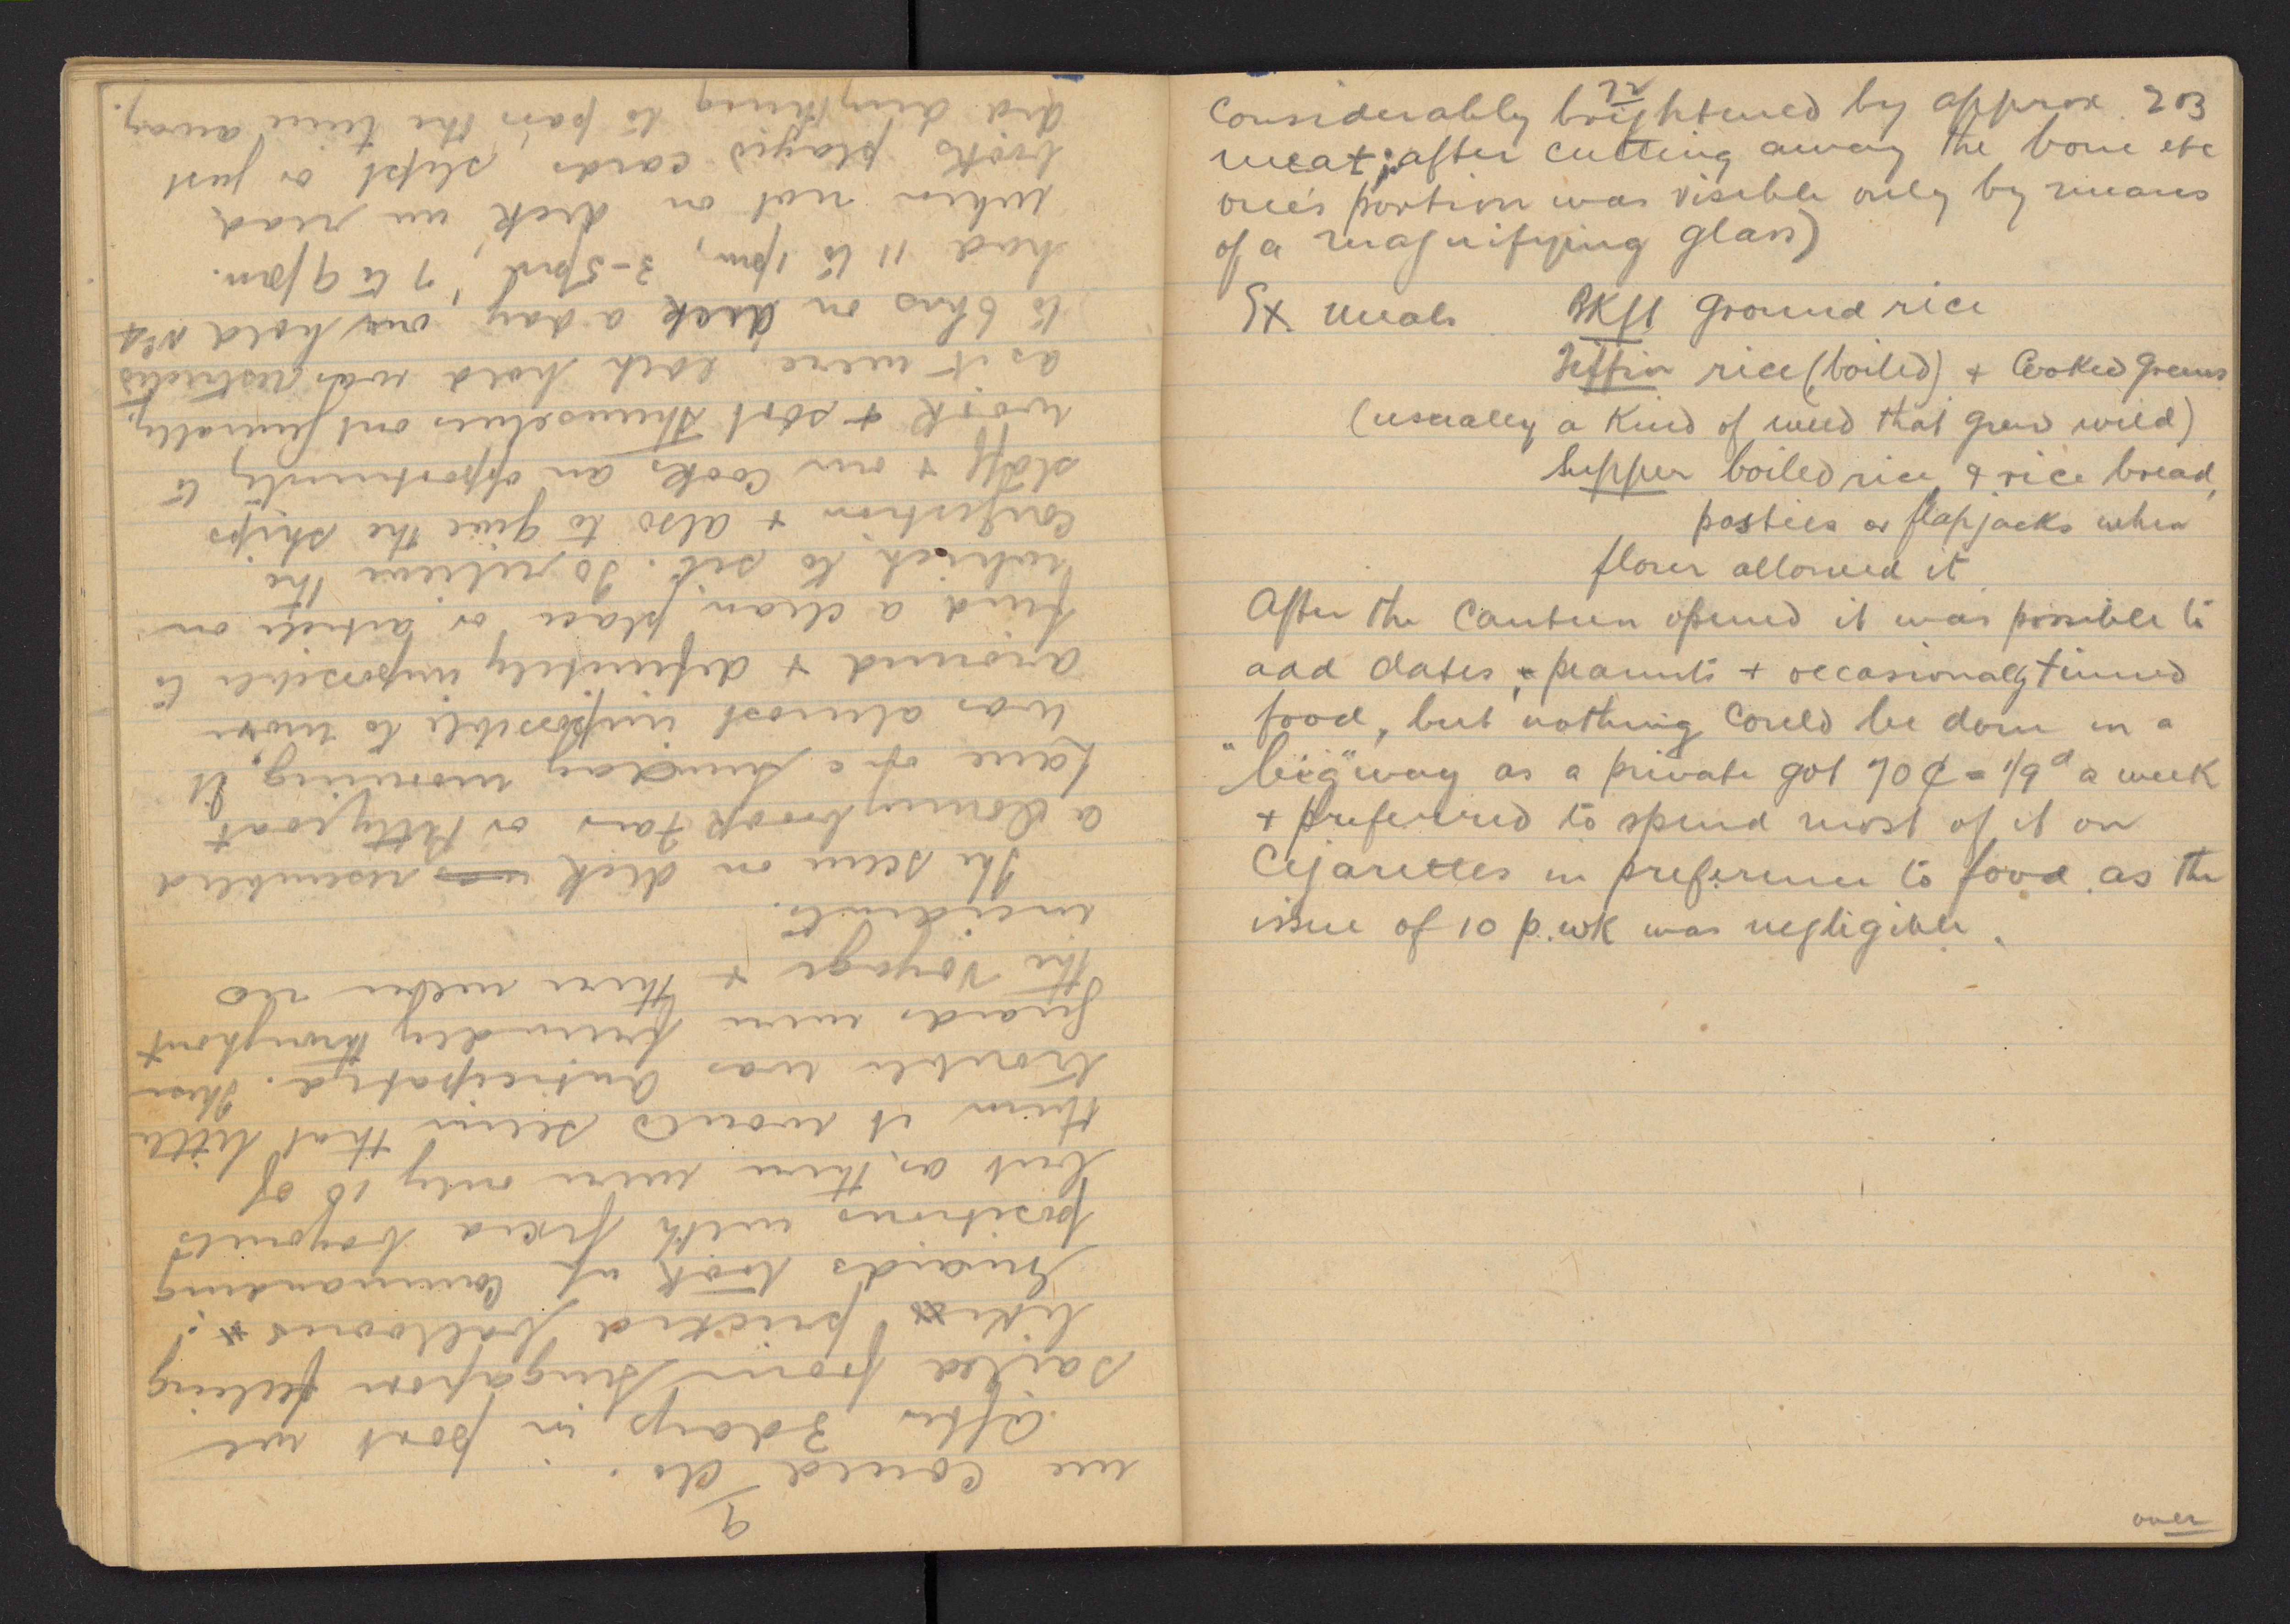 9
we could do.
After 3 days in port we
sailed from Singapore feeling
like pricked balloons !
Guards took up commanding
positions with fixed bayonets
but as there were only 18 of
them it would seem that little
trouble was anticipated. These
guards were friendly throughout
the voyage + there were no
incidents.
The scene on deck was resembled
a Donnybrook Fair or Pettycoat
Lane of a Sunday morning, it
was almost impossible to move
around + definitely impossible to
find a clean place or article on
which to sit. To relieve the
congestion + also to give the ships
staff + our cooks an opportunity to
work + sort themselves out generally,
as it were, each hold was restricted
to 6 hrs on deck a day, our hold No 4
had 11 to 1pm, 3-5pm, 7 to 9pm.
When not on deck we read
books played cards slept or just
did anything to pass the time away.
72
Considerably brightened by approx 2 oz
meat; after cutting away the bone etc
one's portion was visible only by means
of a magnifying glass)
Ex. meals Bkft ground rice
Tiffin rice (boiled) + Cooked greens
(usually a kind of weed that grew wild)
Supper boiled rice + rice bread,
pasties or flapjacks when
flour allowed it
After the Canteen opened it was possible to
add dates, peanuts + occasionally tinned
food, but nothing could be done in a
"big" way as a private got 70¢ = 1/9d a week
+ preferred to spend most of it on
Cigarettes in preference to food as the
issue of 10 p.wk was negligible.
over